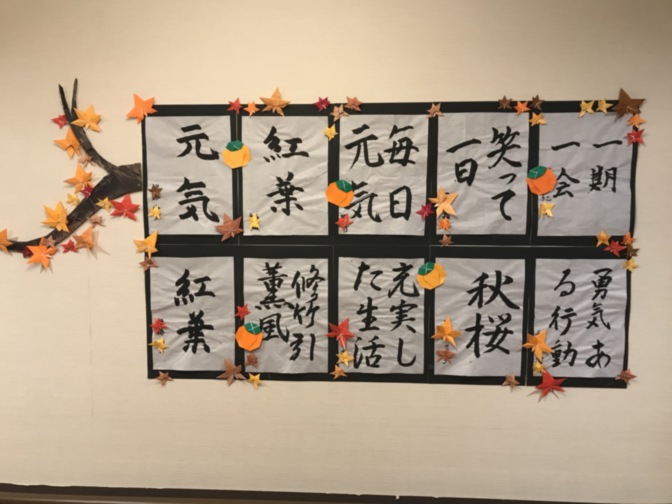 一期
一会
笑って
一日
毎日
元気
紅葉
元気
勇気あ
る行動
秋桜
充実し
た生活
修竹引
薫風
紅葉